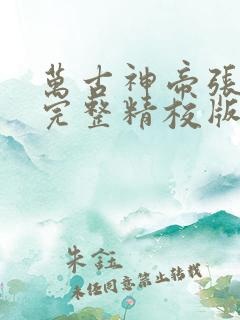 萬古神帝張
完整精校版
朱鈺
未經同意禁止轉載